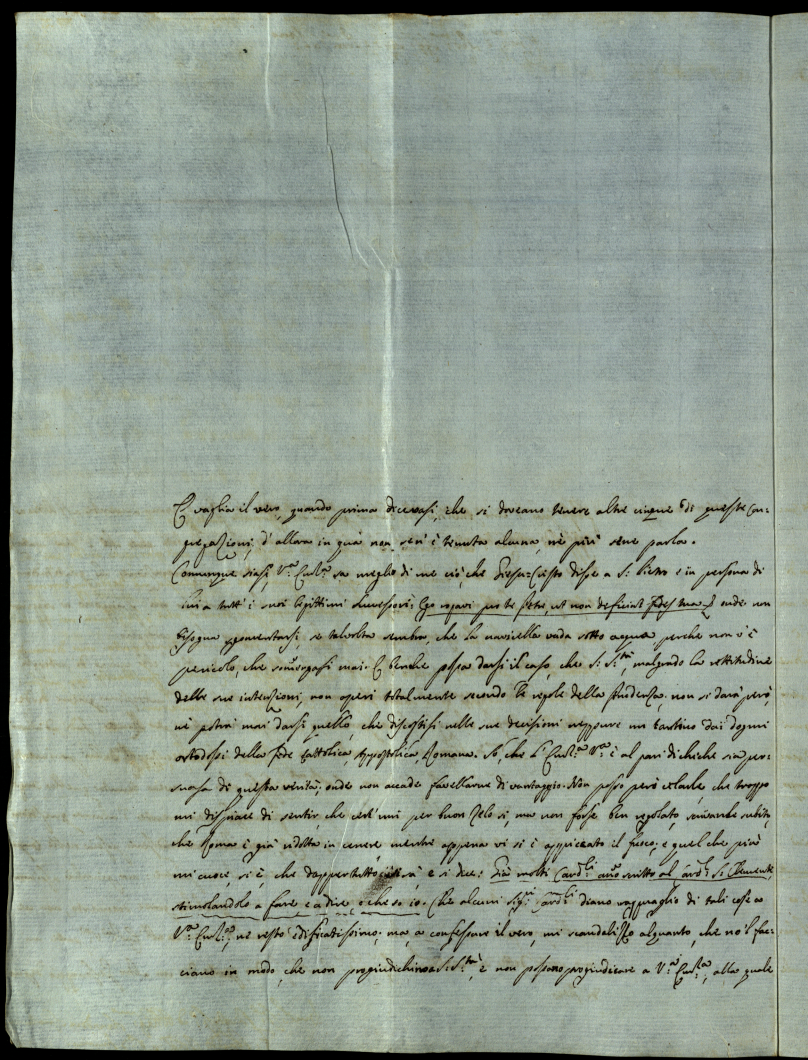 E vaglia il vero, quando prima dicevasi, che si doveano tenere altre cinque di queste Con-
gregazioni, d'allora in quà non sen'è tenuta alcuna, nè più sene parla.
Comunque siasi, V.ª Em.ª sa meglio di me ciò, che Giesu-Cristo disse a S. Pietro e in persona di
lui a tutt'i suoi legittimi Successori: Ego rogavi pro te Petre, ut non deficiat fides tua; onde non
bisogna sgomentarsi, se talvolta sembra, che la navicella vada sotto acqua perche non v'è
pericolo, che somergasi mai. E benche possa darsi il caso, che S. S.tà, malgrado la rettitudine
delle sue intenzioni, non operi totalmente secondo le regole della Prudenza, non si darà però,
nè potrà mai darsi quello, che discostisi nelle sue decisioni neppure un tantino dai dogmi
ortodossi della Fede Cattolica, Appostolica Romana. So, che l'Em.ª V.ª è al pari di chiche sia per-
suasa di questa verità; onde non accade favellarne di vantaggio. Non posso però celarle, che troppo
mi dispiace di sentir, che cert'uni per buon zelo si, ma non forse ben regolato, scrivanle subito,
che Roma è già ridotta in cenere mentre appena vi si è appiccato il fuoco; e quel che più
mi cuoce, si è, che dappertutto si sà e si dice: Già molti Card.li anno scritto al Card.l S. Clemente,
stimolandolo a fare e a dire e che so io. Che alcuni Sig.ri Card.li diano ragguaglio di tali cose a
V.ª Em.ª, ne resto edificatissimo; ma, a confessare il vero, mi scandalizzo alquanto, che no'l fac-
ciano in modo, che non pregiudichino a S. S.tà, e non possano pregiudicare a V.ª Em.ª, alla quale